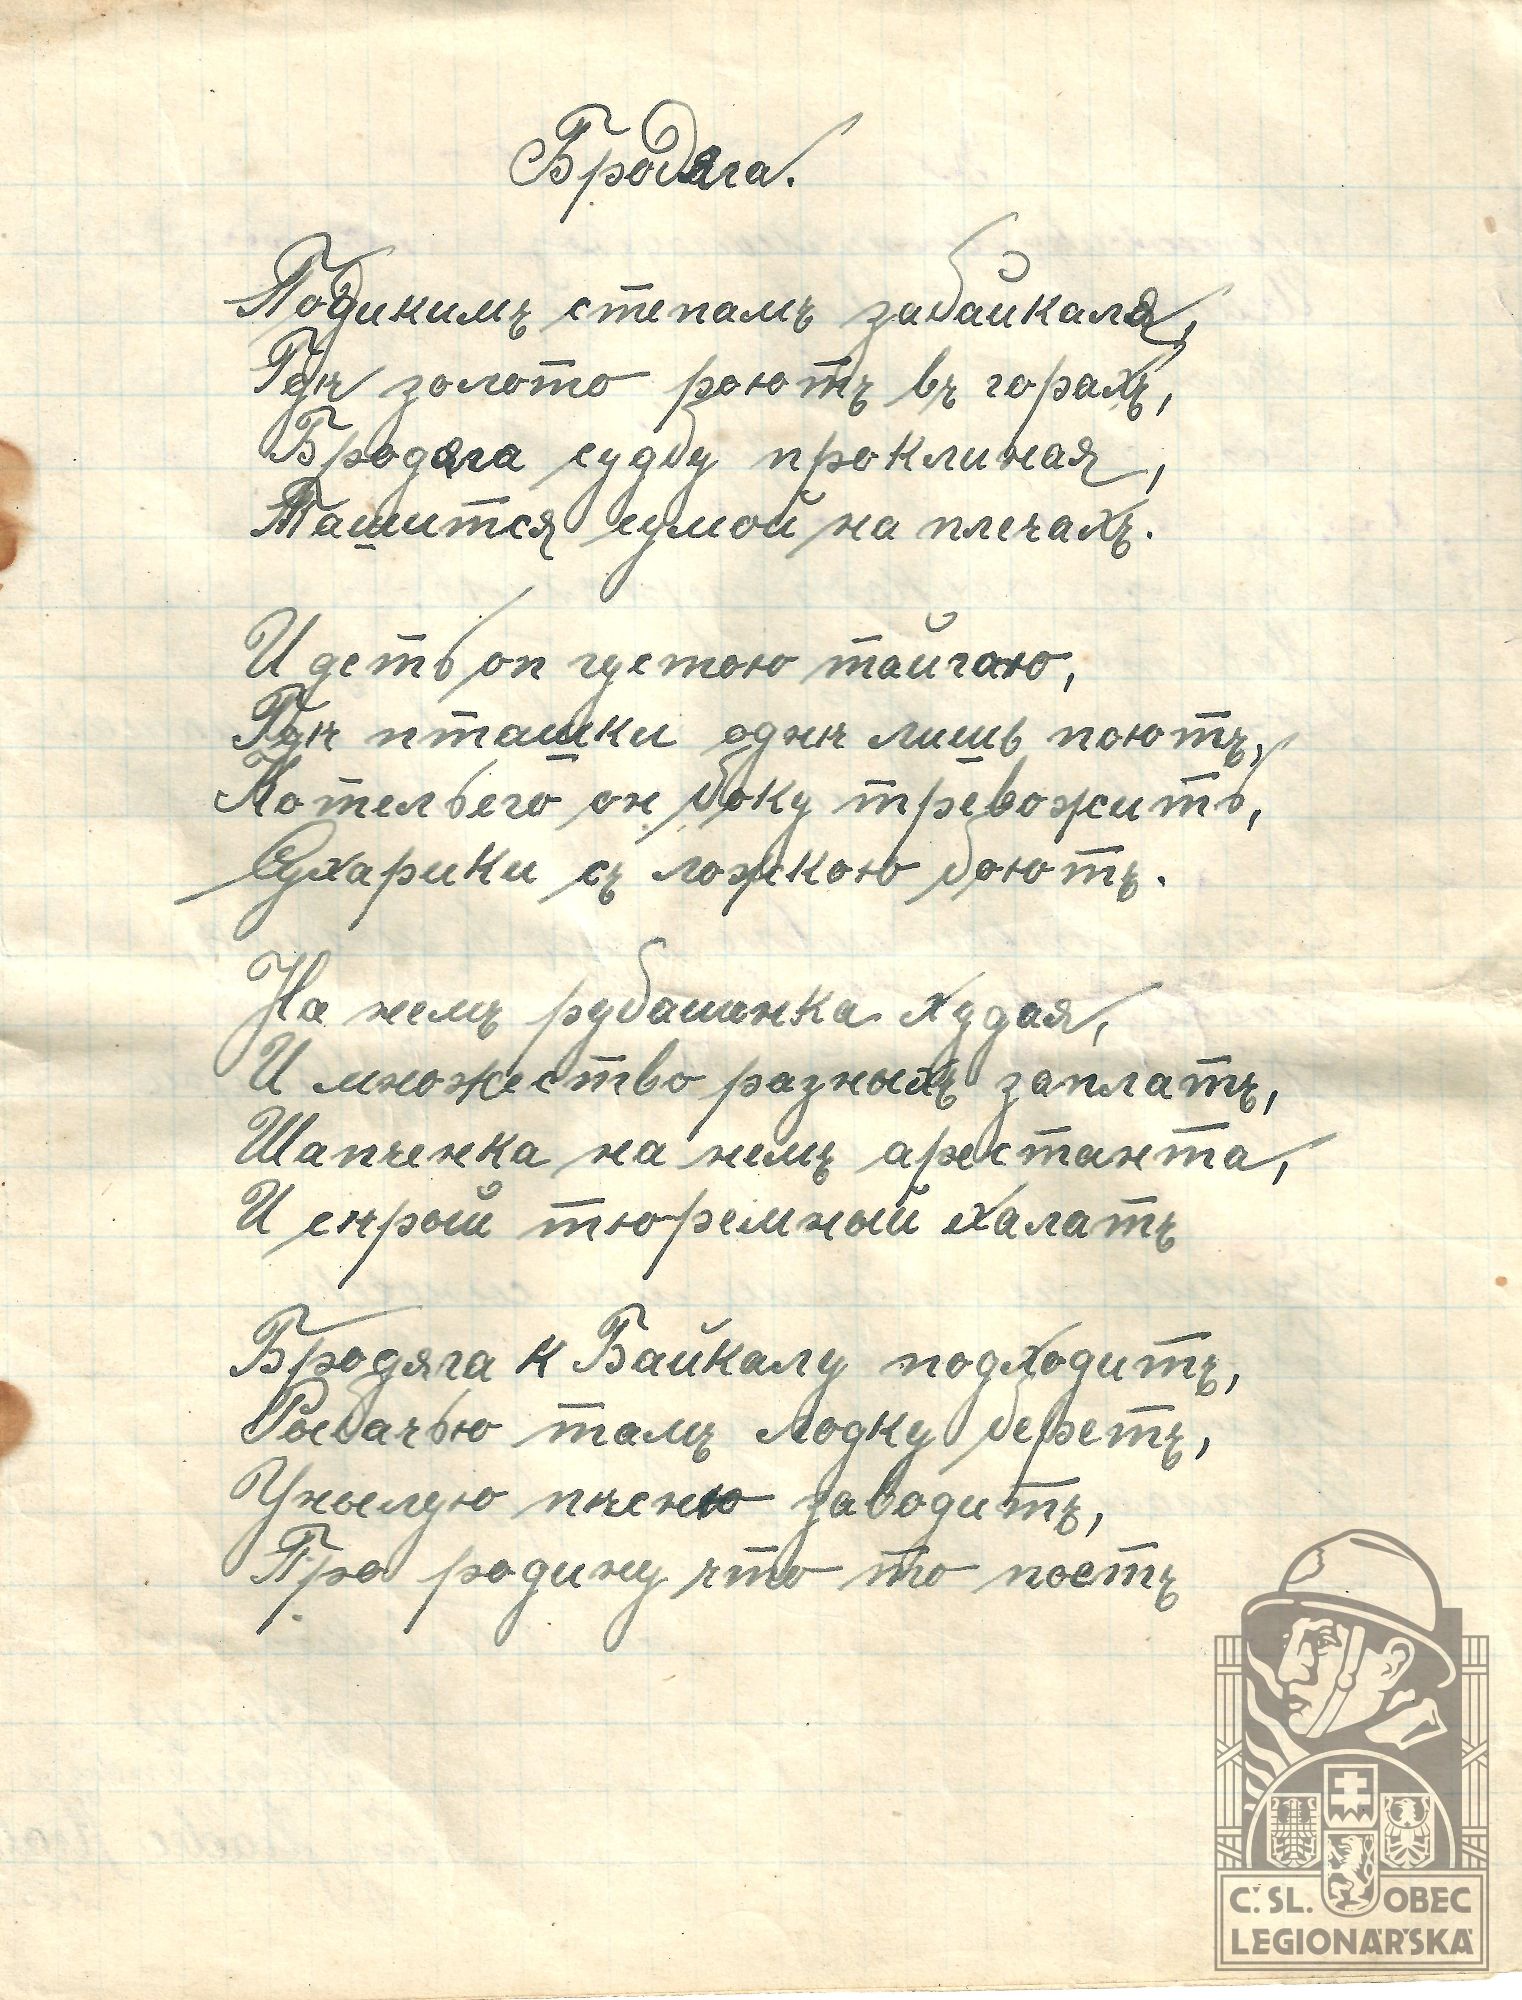 Бродяга.
Подикимъ степамъ забайкаля,
Гдѣ золото роютъ въ горахъ,
Бродяга судбу проклиная,
Ташится сумой на плечахъ.
И деть оп густою тайгаю,
Гдѣ пташки однѣ лишь поютъ,
Котельего он боку тревожить,
Сухарики съ ложкою боютъ.
На немъ рубашенка худая,
И множество разныхъ заплатъ,
Шапченка на немъ арестанта,
И сѣрый тюремный халатъ
Бродяга к Байкалу подходитъ,
Рыбачью тамъ лодку беретъ,
Унылую пѣсеню заводитъ,
Про родину что то поетъ
Č.SL. OBEC
LEGIONÁŘSKÁ